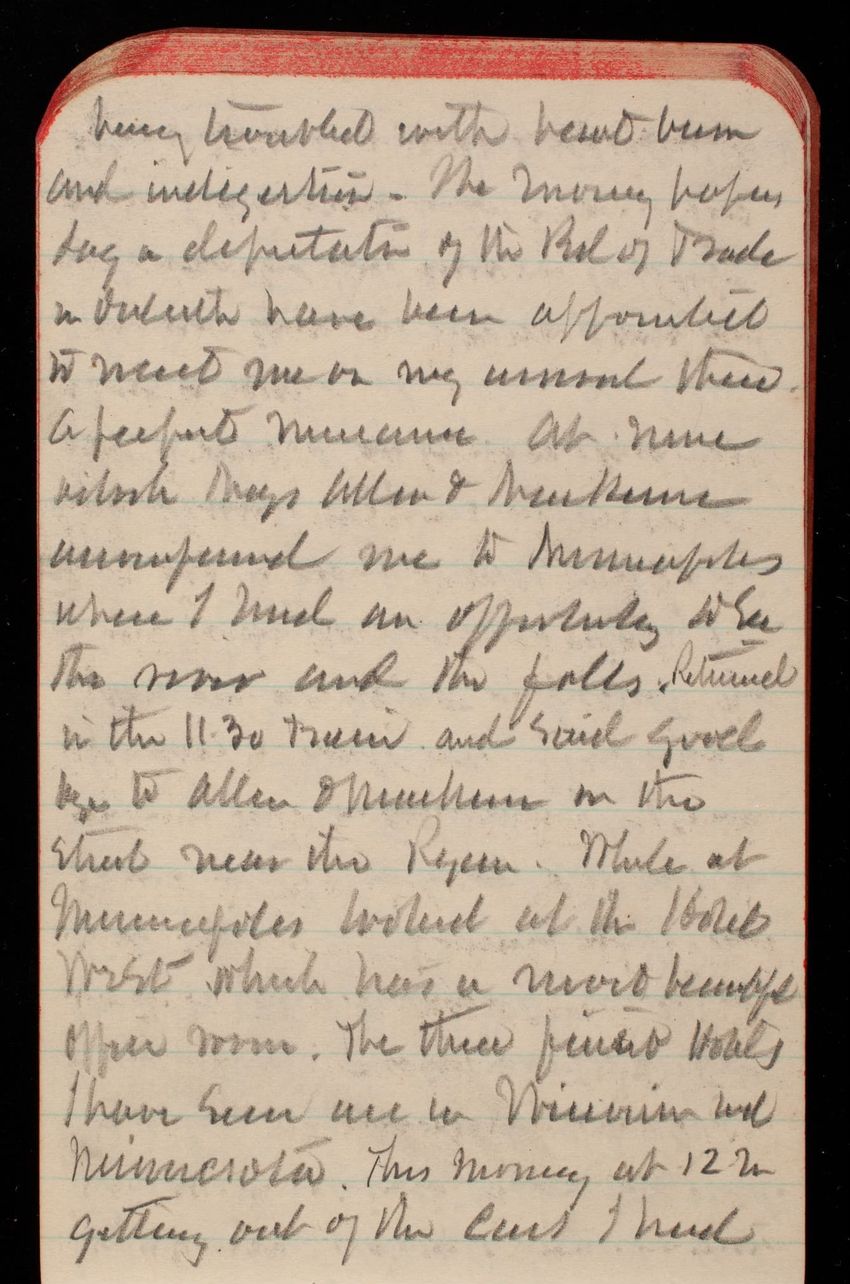 being troubled with heart burn
and indigestion. The morning papers
say a deputation of the Bd of Trade
in Duluth have been appointed
to meet me on my arrival there.
A perfect nuisance. At nine
oclock Mays Allen &
accompanied me to Minneapolis
where I had an opportunity to see
the river and the falls. Returned
in the 11.30 train and said good
bye to Allen & on the
Street near the Ryan. While at
Minneapolis looked at the Hotel
West which has a most beautiful
office room. The three finest Hotels
I have seen are in Wisconsin and
Minnesota. This morning at 12 M
getting out of the Cars I had